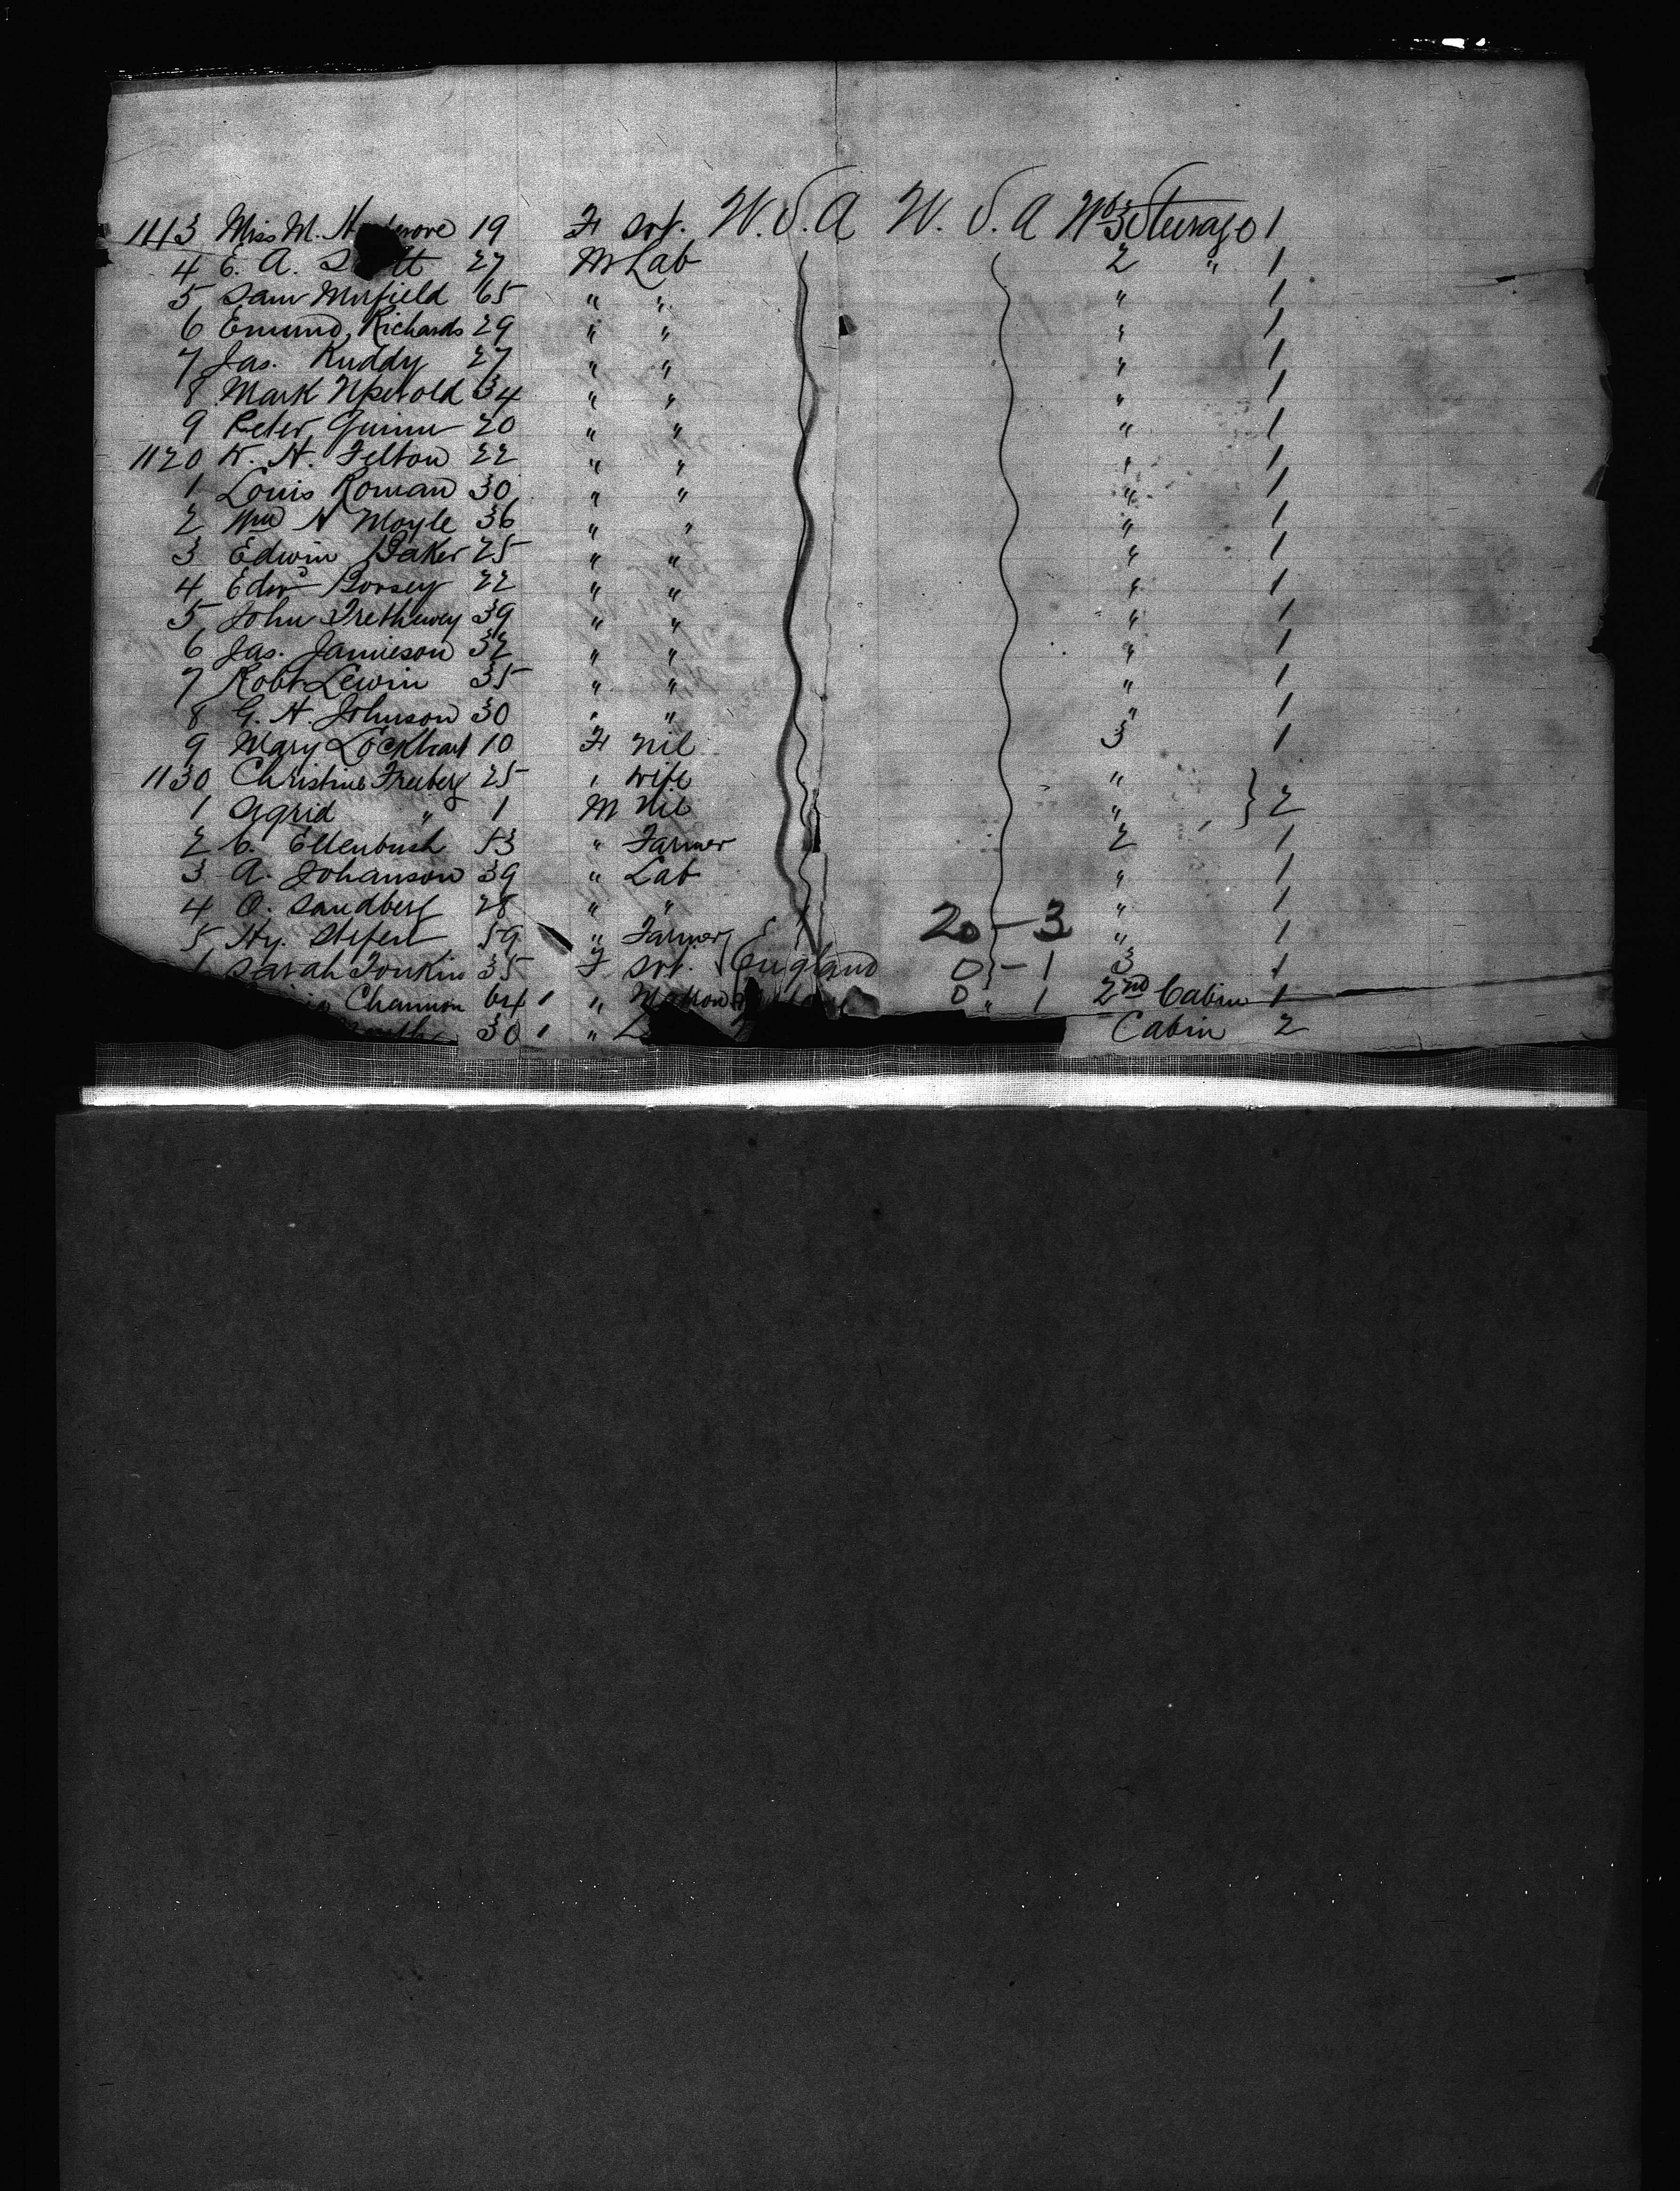 1113 Miss M. 19 F Srt. U.S.A U.S.A No 3 Steerage 1
4 E. A. 27 M Lab 2 " 1
5 Sam Mufield 65 " " " 1
6 Emund. Richards 29 " " " 1
7 Jas. Ruddy 27 " " " 1
8 Mark 34 " " " 1
9 Peter Quinn 20 " " " 1
1120 W. H. Felton 22 " " " 1
1 Louis Roman 30 " " " 1
2 Wm H Moyle 36 " " " 1
3 Edwin Baker 25 " " " 1
4 Edw Dorsey 22 " " " 1
5 John Trethewey 39 " " " 1
6 Jas. Jamieson 32 " " " 1
7 Robt Lewin 35 " " " 1
8 G. H. Johnson 30 " " " 1
9 Mary Lockhart 10 F nil 3 1
1130 Christine Freeberg 25 " wife "
1 " 1 M Nil " } 2
2 C. Ellenbush 53 " Farmer 2 1
3 A. Johanson 39 " Lab " 1
4 O. Sandberg 28 " " 20 - 3 " 1
5 Hy. 59 " Farmer " 1
Sarah Tonkin 35 F Srt. England 0 - 1 3 1
Channon 64 " 0 " 1 2nd Cabin 1
30 " Cabin 2